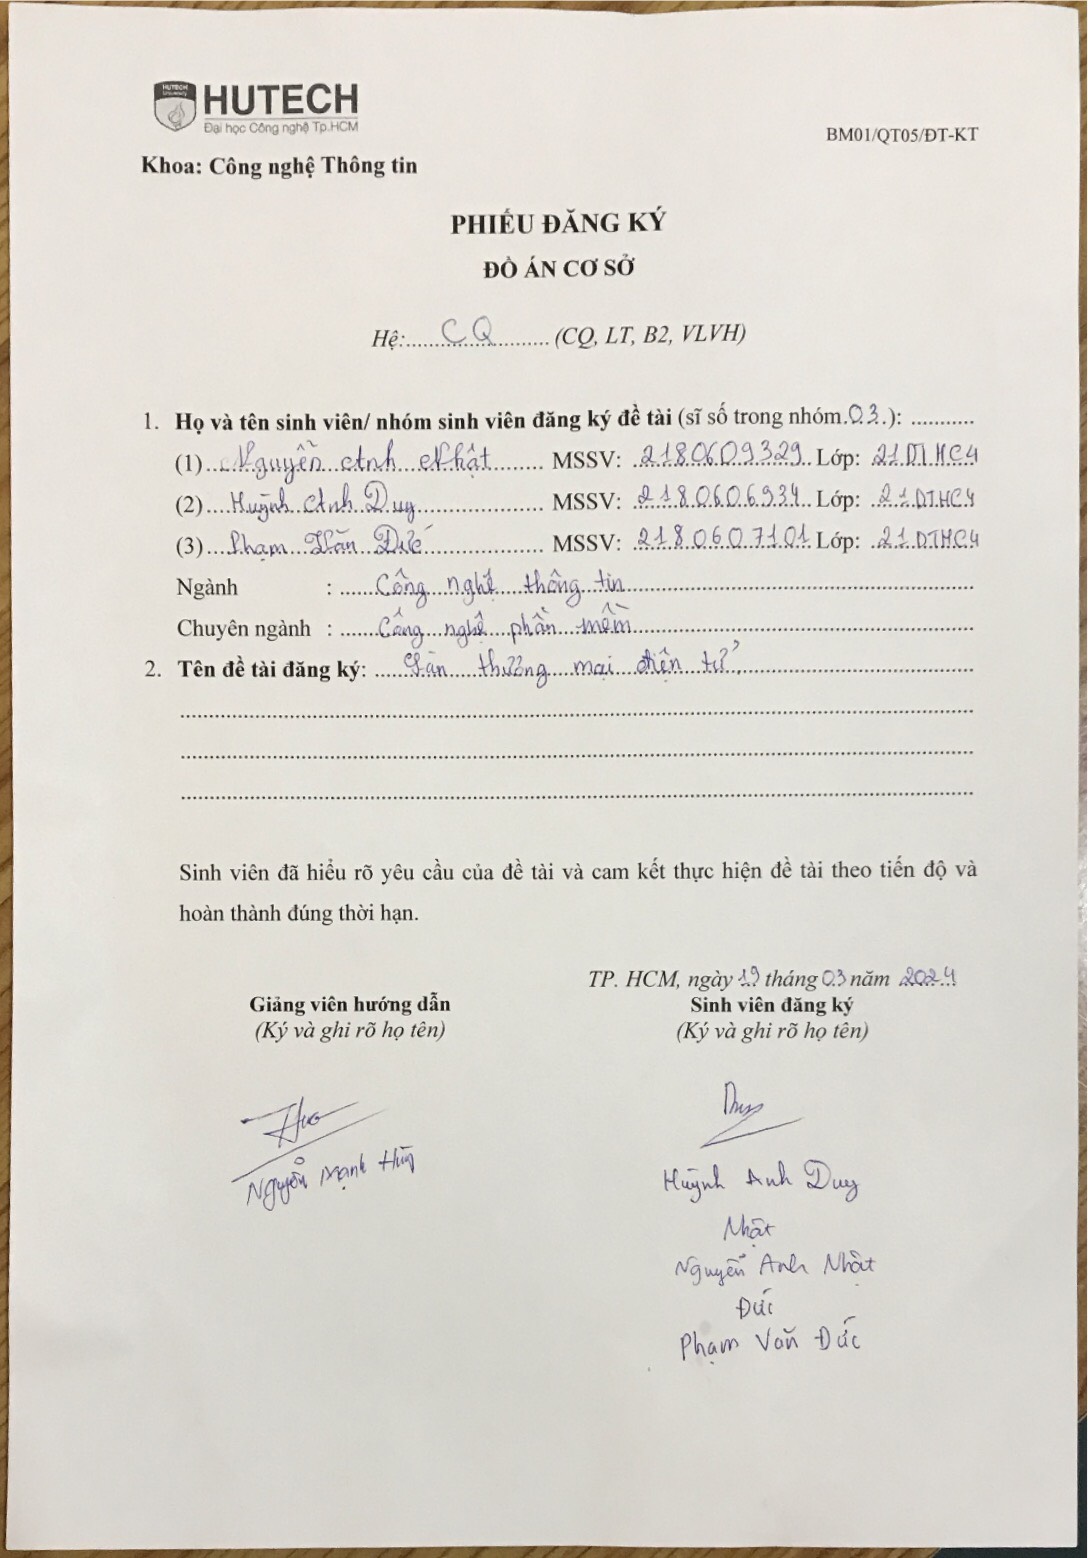 HUTECH
University
HUTECH
Đại học Công nghệ Tp.HCM
BM01/QT05/ĐT-KT
Khoa: Công nghệ Thông tin
PHIẾU ĐĂNG KÝ
ĐỒ ÁN CƠ SỞ
Hệ:......CQ......(CQ, LT, B2, VLVH)
1. Họ và tên sinh viên/ nhóm sinh viên đăng ký đề tài (sĩ số trong nhóm.03.): ...........
(1)...Nguyễn Anh Nhật........ MSSV: .2180609329. Lớp: 21DTHC4
(2)....Huỳnh Anh Duy........ MSSV: .2180606934. Lớp: .21DTHC4
(3)....Phạm Văn Đức........ MSSV: .2180607101. Lớp: .21DTHC4
Ngành : ......Công nghệ thông tin......
Chuyên ngành : ......Công nghệ phần mềm......
2. Tên đề tài đăng ký: .....Sàn thương mại điện tử......
Sinh viên đã hiểu rõ yêu cầu của đề tài và cam kết thực hiện đề tài theo tiến độ và
hoàn thành đúng thời hạn.
TP. HCM, ngày 19 tháng 03 năm 2024
Giảng viên hướng dẫn Sinh viên đăng ký
(Ký và ghi rõ họ tên) (Ký và ghi rõ họ tên)
Duy
Nguyễn Mạnh Hùng
Huỳnh Anh Duy
Nhật
Nguyễn Anh Nhật
Đức
Phạm Văn Đức